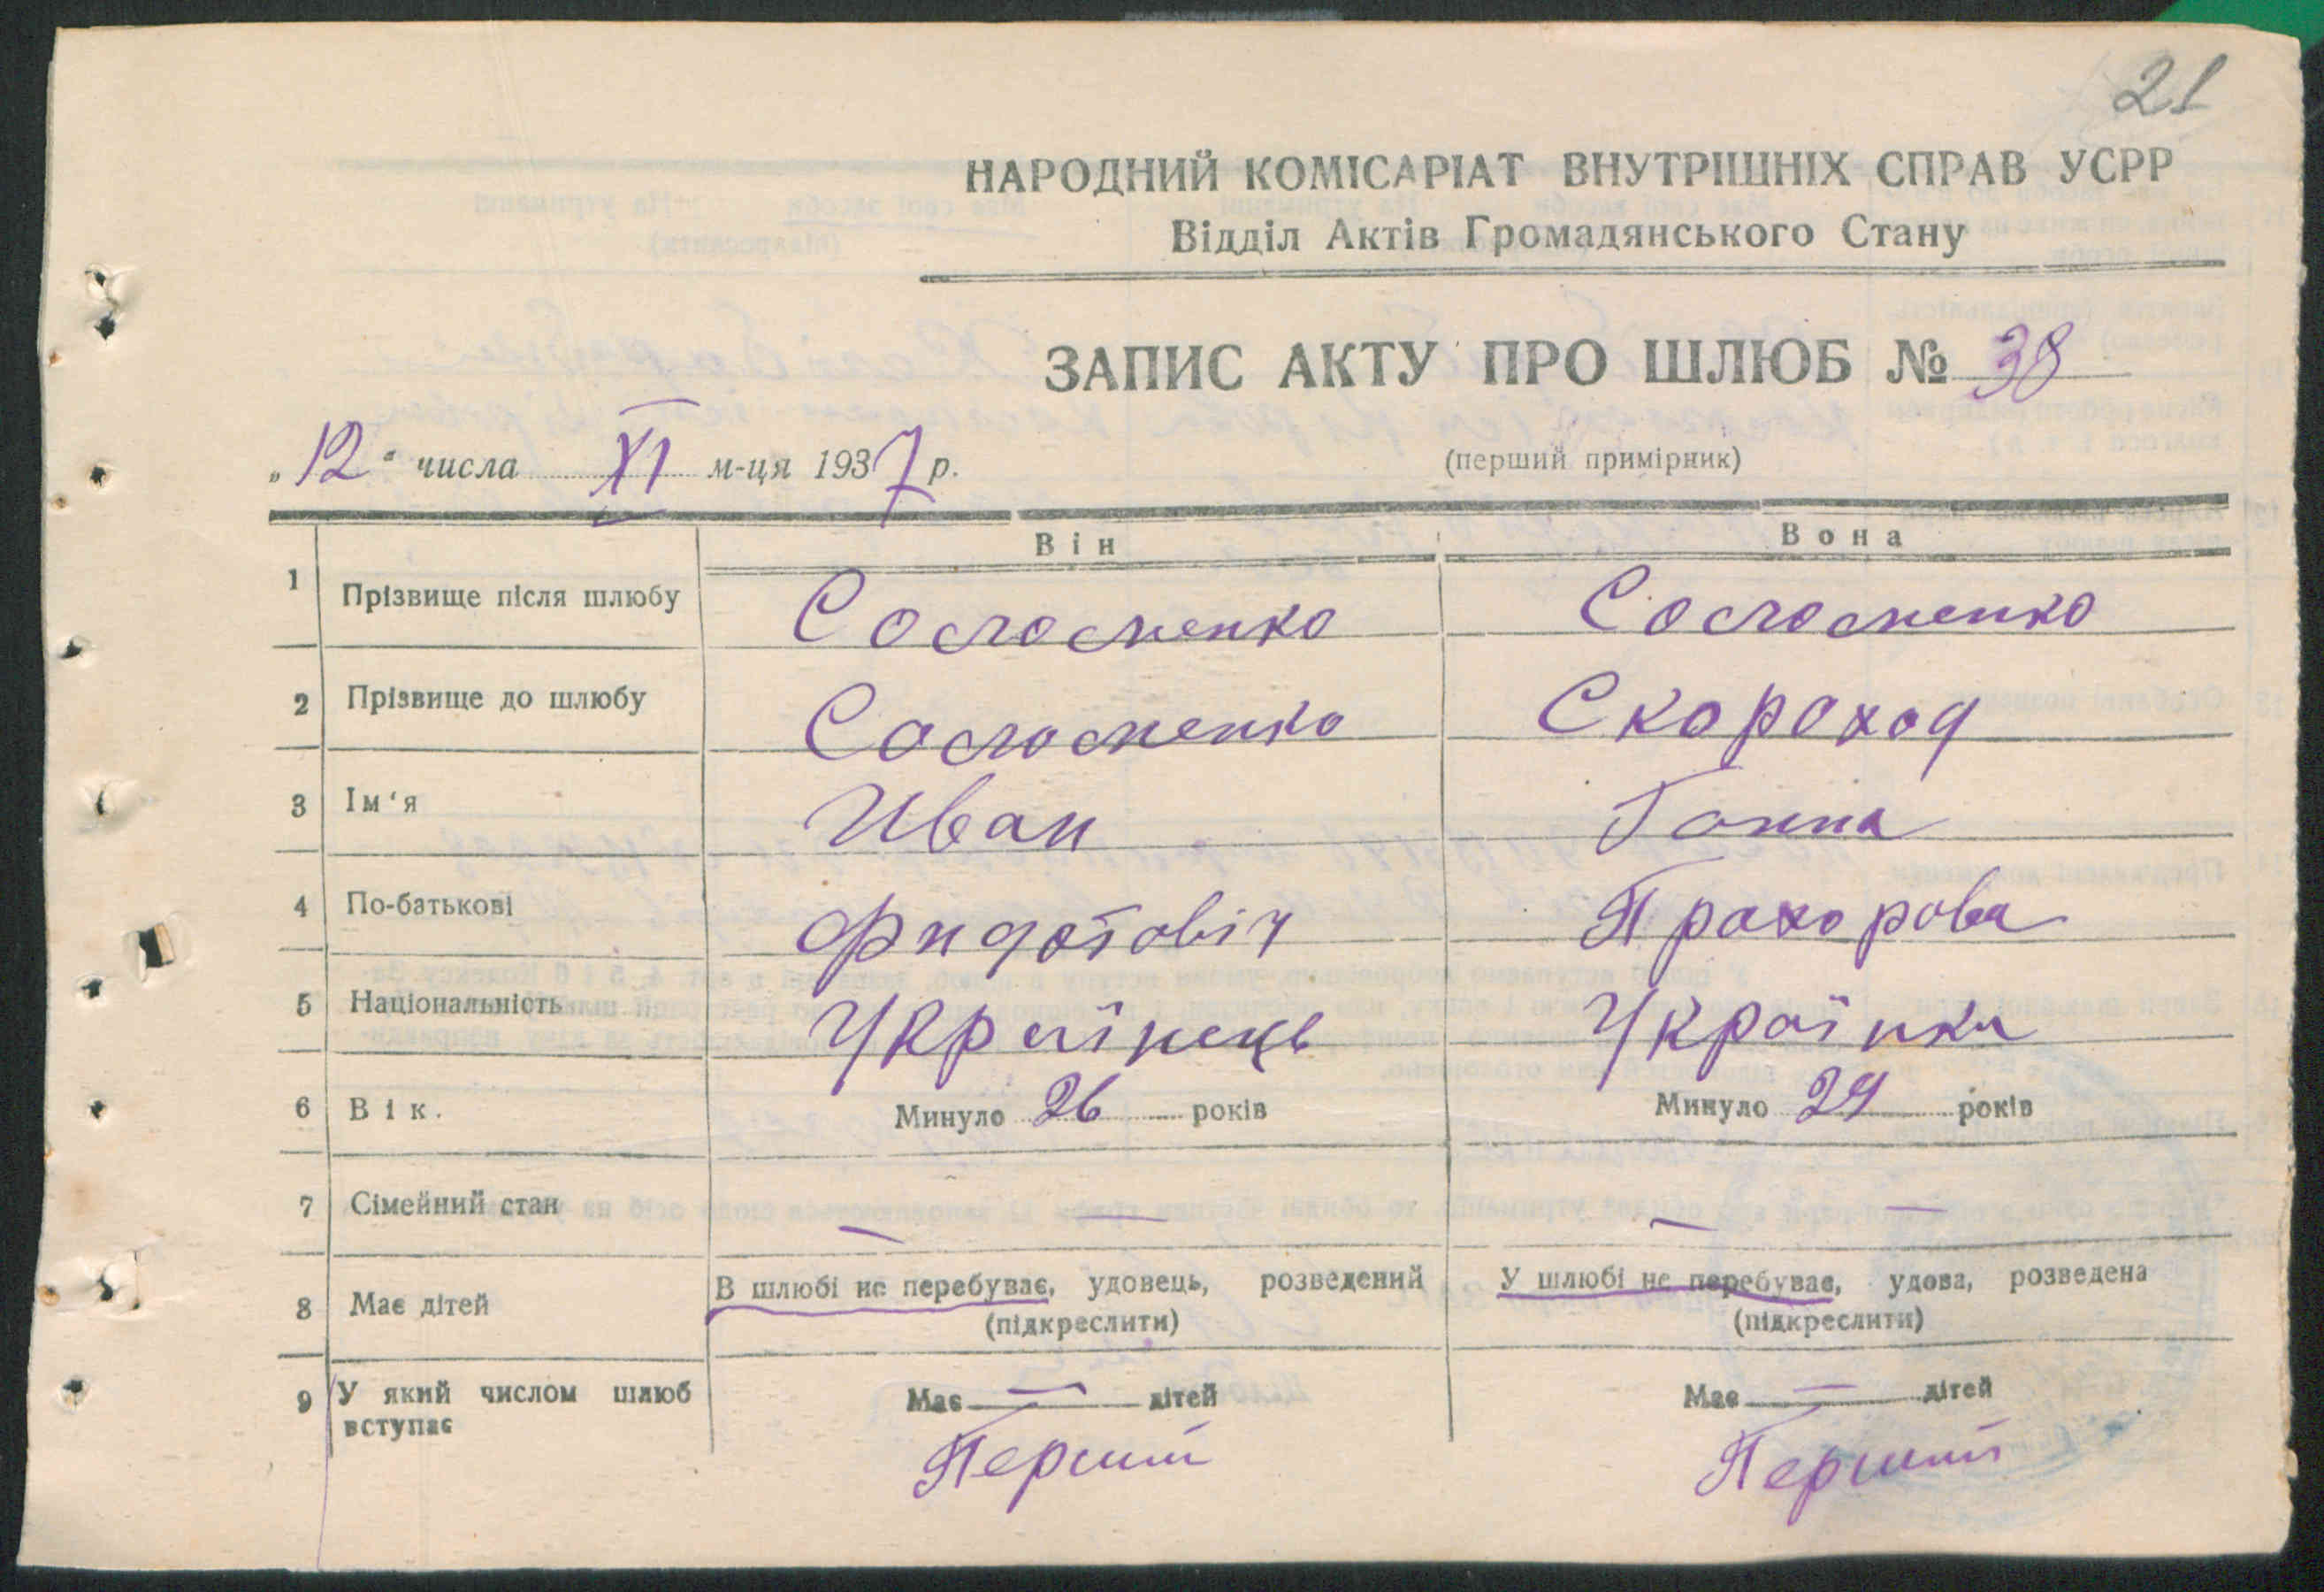 21
НАРОДНИЙ КОМІСАРІАТ ВНУТРІШНІХ СПРАВ УСРР
Відділ Актів Громадянського Стану
ЗАПИС АКТУ ПРО ШЛЮБ № 38
„12“ числа XI м-ця 1937 р.
(перший примірник)
Він Вона
1 Прізвище після шлюбу Соломенко Соломенко
2 Прізвище до шлюбу Соломенко Скороход
3 Ім‘я Иван Ганна
4 По-батькові Фидотовіч Прохорова
5 Національність Українець Українка
6 Вік. Минуло 26 років Минуло 24 років
7 Сімейний стан — — — —
В шлюбі не перебуває, удовець, розведений У шлюбі не перебуває, удова, розведена
8 Має дітей (підкреслити) (підкреслити)
9 У який числом шлюб Має — дітей Має — дітей
вступає
Перший Перший